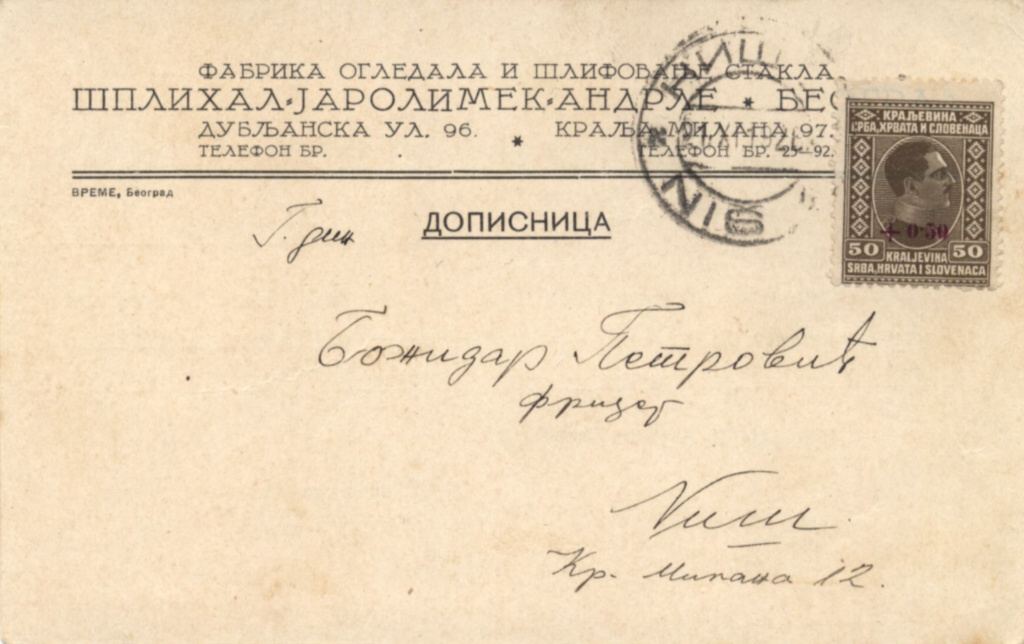 ФАБРИКА ОГЛЕДАЛА И ШЛИФОВАЊЕ СТАКЛА
ШПЛИХАЛ-ЈАРОЛИМЕК-АНДРЛЕ * БЕО
ДУБЉАНСКА УЛ. 96. * КРАЉА МИЛАНА 97.
ТЕЛЕФОН БР. ТЕЛЕФОН БР. 25-92.
НИШ
NIŠ
КРАЉЕВИНА
СРБА, ХРВАТА И СЛОВЕНАЦА
+ 0·50
50 50
KRALJEVINA
SRBA, HRVATA I SLOVENACA
ВРЕМЕ, Београд
ДОПИСНИЦА
Г. дин
Божидар Петровић
фризер
Ниш
Кр. Милана 12.